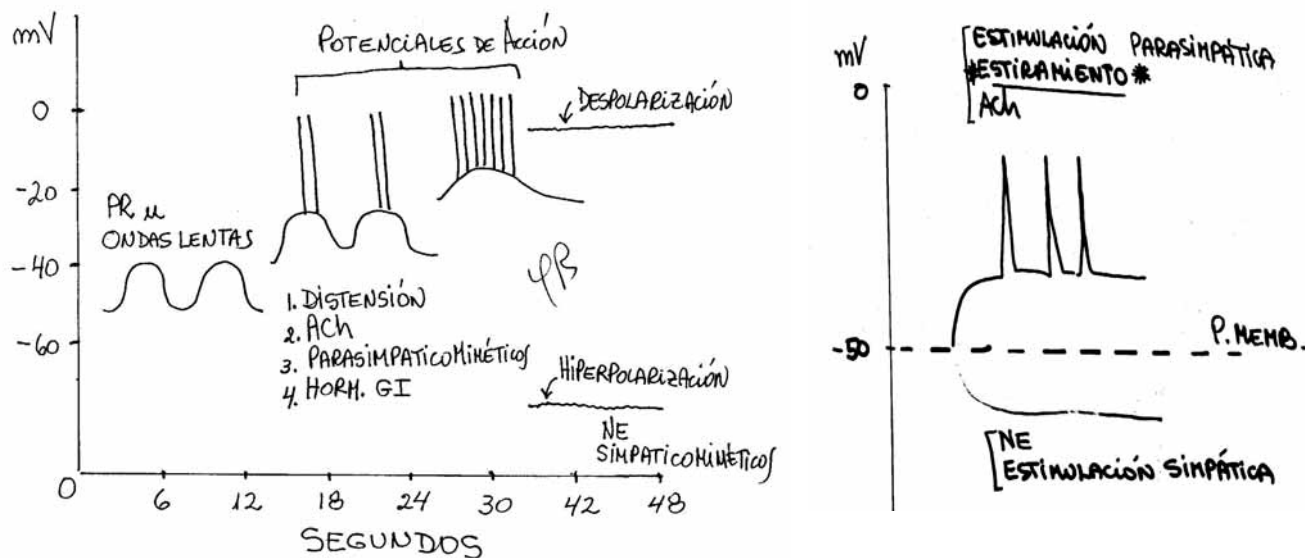 mV
POTENCIALES DE ACCIÓN
0
DESPOLARIZACIÓN
-20
PR u
ONDAS LENTAS
-40
-60
1. DISTENSIÓN
2. ACh
3. PARASIMPATICOMIMÉTICOS
4. HORM. GI
HIPERPOLARIZACIÓN
NE
SIMPATICOMIMÉTICOS
0
6
12
18
24
30
42
48
SEGUNDOS
mV
ESTIMULACIÓN PARASIMPÁTICA
*ESTIRAMIENTO*
ACh
0
-50
P. MEMB.
NE
ESTIMULACIÓN SIMPÁTICA